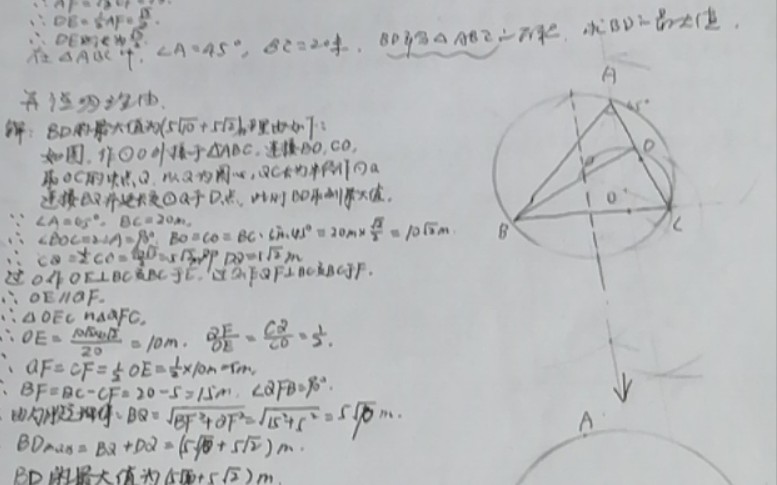 ∴ DE=½AF=
在△ABC中,∠A=45°,BC=20米,BD 为△ABC 求BD 最大值.
解:BD的最大值为(5√10+5√2)m,理由如下:
如图,作⊙O外接于△ABC,连接BO,CO,
取OC的中点Q,以Q为圆心,QC长为半径作⊙Q
连接BQ并延长交⊙Q于D点,此时BD取到最大值.
∵ ∠A=45°,BC=20m,
∴ ∠BOC=2∠A=90° BO=CO=BC·sin45°=20m×√2/2=10√2m.
∴ CQ=½CO= =5√2m即DQ=5√2m
过O作OE⊥BC交BC于E,过Q作QF⊥BC交BC于F.
∴ OE∥QF.
∴ △OEC∽△QFC.
∴ OE= /20=10m. QF/OE=CQ/CO=½.
∴ QF=CF=½OE=½×10m=5m.
∴ BF=BC-CF=20-5=15m. ∠QFB=90°.
由勾股定理得:BQ=√BF²+QF²=√15²+5²=5√10m.
BDmax=BQ+DQ=(5√10+5√2)m.
BD的最大值为(5√10+5√2)m.
A
45°
D
O
B
C
A